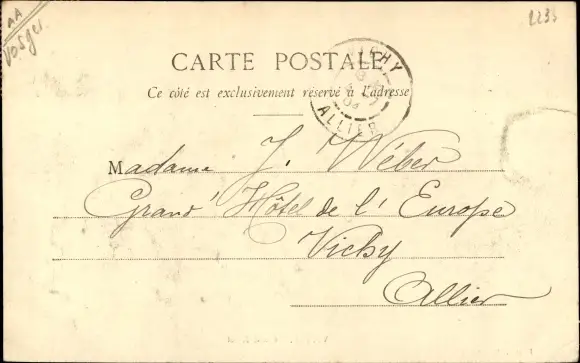 AA
Vosges
2235
CARTE POSTALE
Ce côté est exclusivement réservé à l'adresse
VICHY
ALLIER
Madame J. Wéber
Grand Hôtel de l'Europe
Vichy
Allier